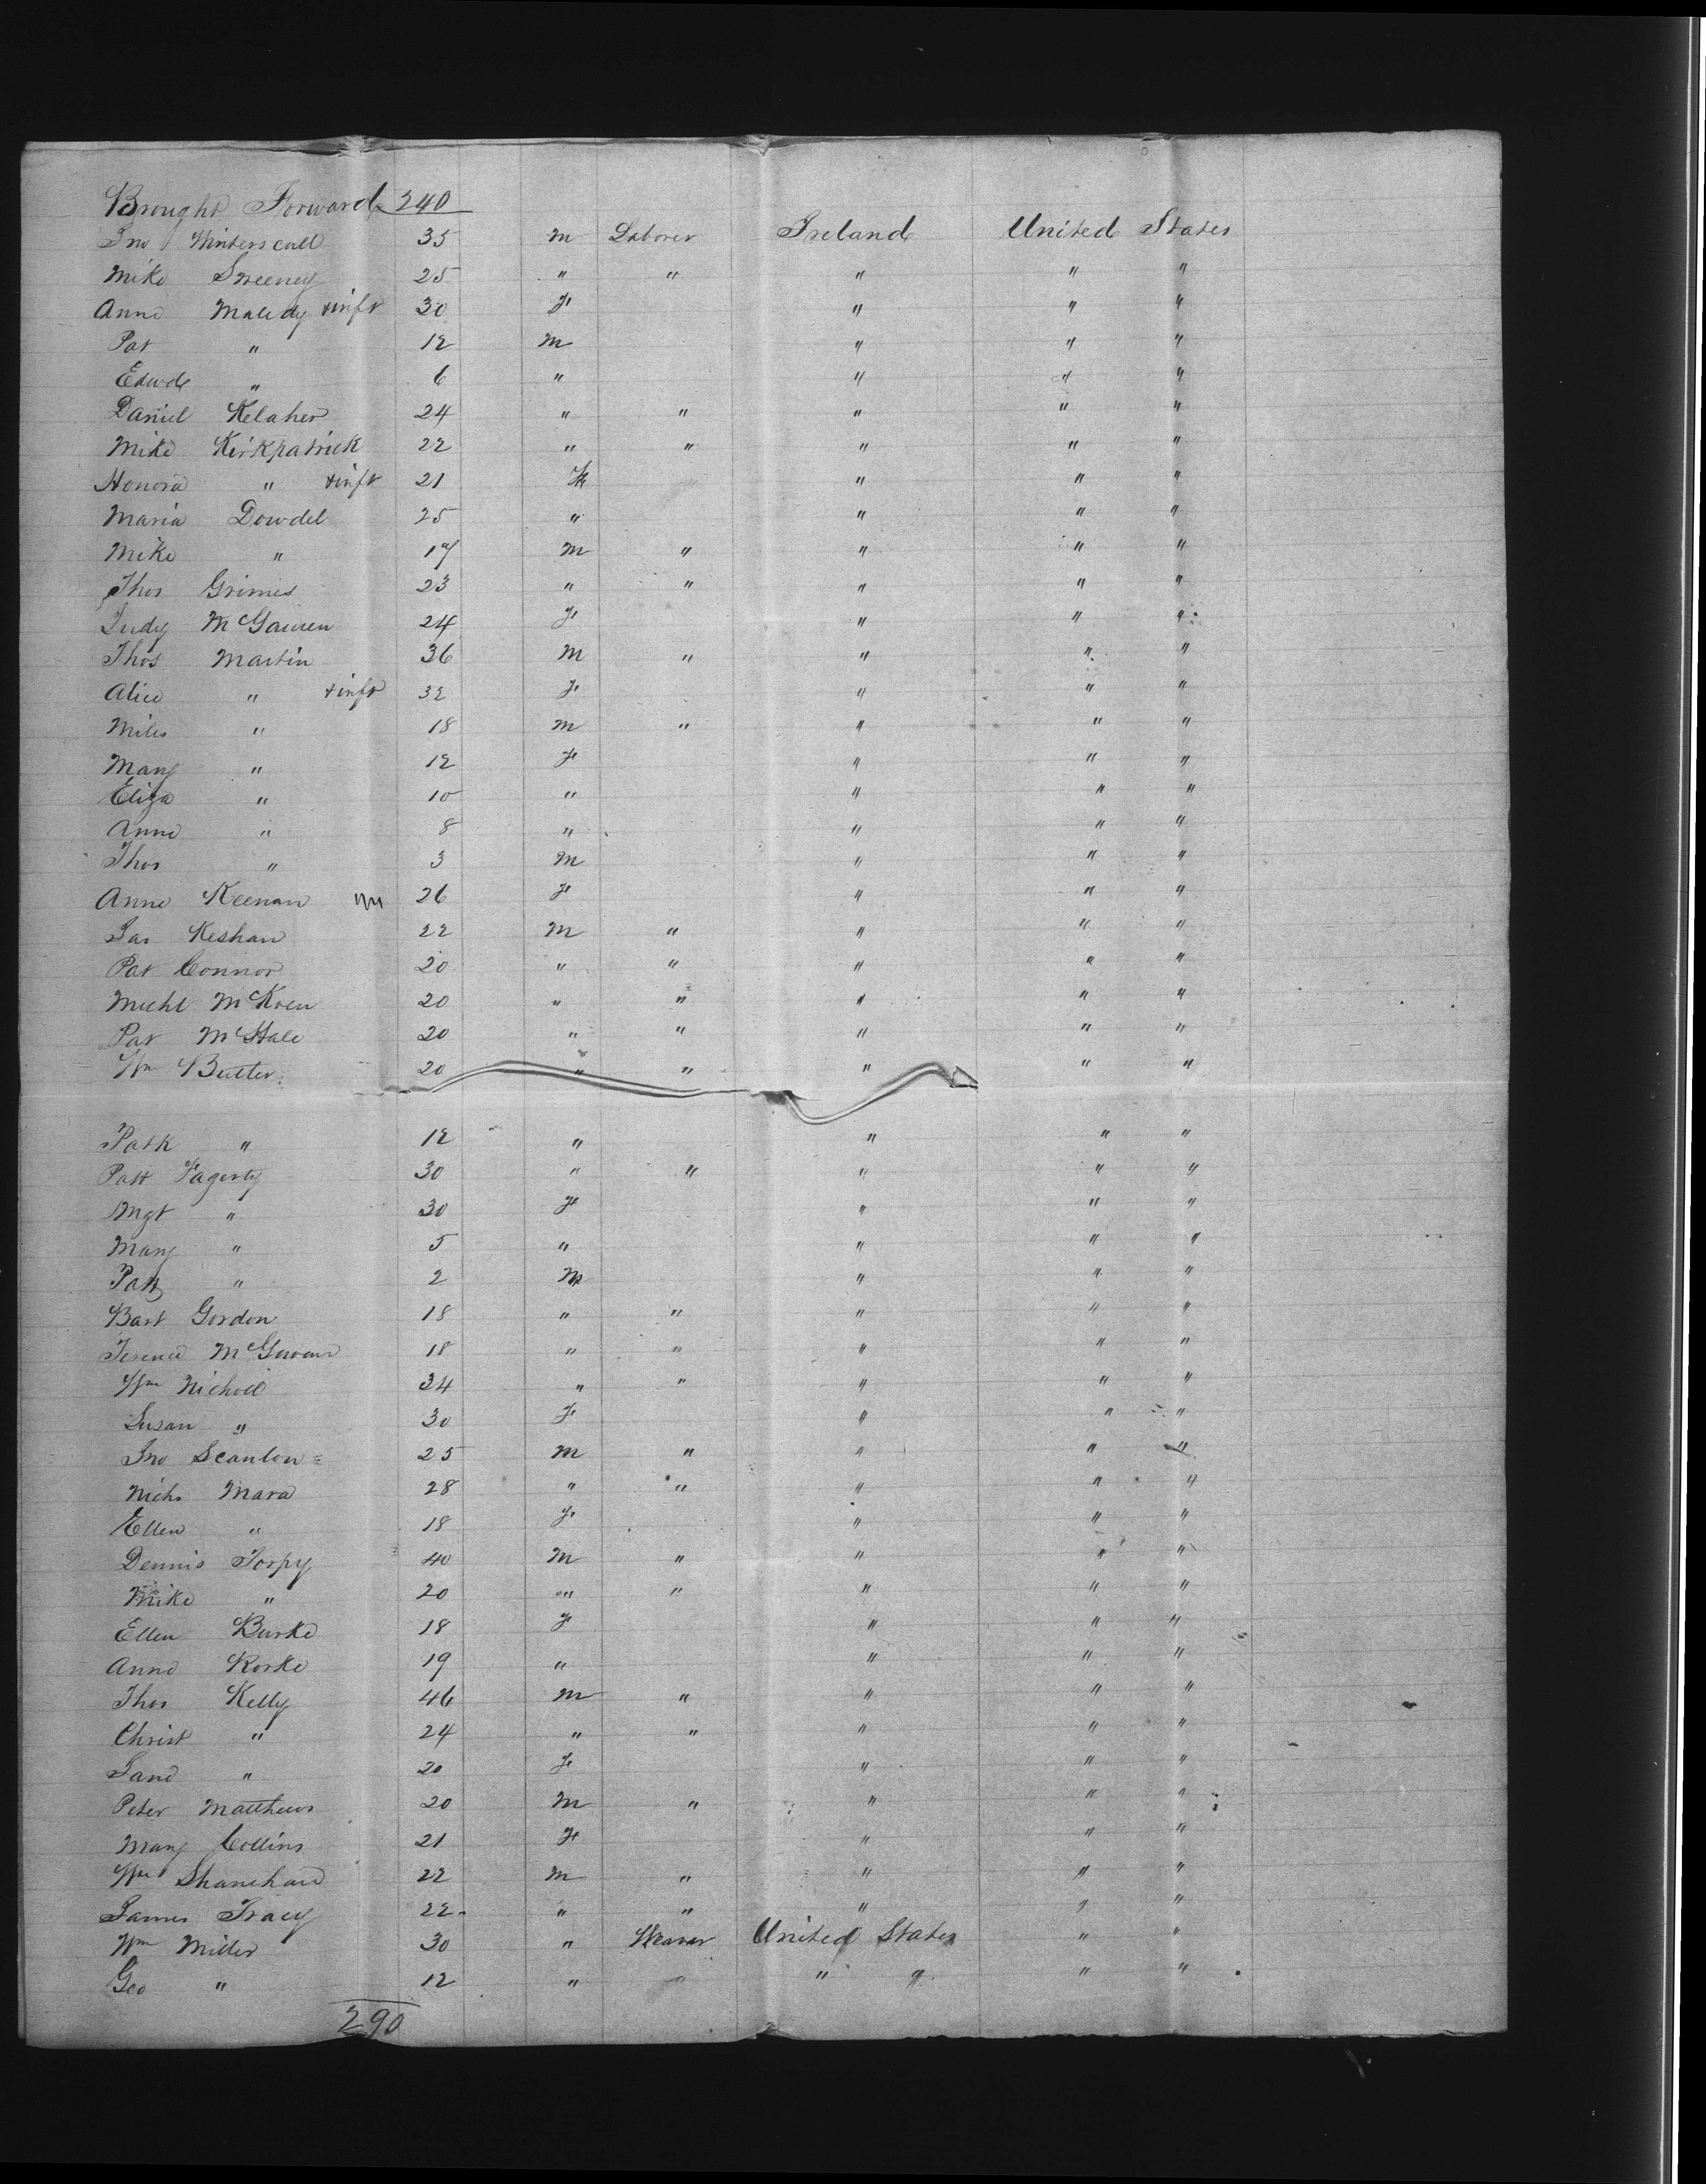 Brought Forward 240
Jno Winterscall 35 m Laborer Ireland United States
Mike Sweeney 25 " " " " "
Anne Maledy & inft 30 F " " "
Pat " 12 m " " "
Edwd " 6 " " " "
Daniel Kelaher 24 " " " " "
Mike Kirkpatrick 22 " " " " "
Honora " & inft 21 F " " "
Maria Dowdel 25 " " " "
Mike " 17 m " " " "
Thos Grimes 23 " " " " "
Judy McGauren 24 F " " "
Thos Martin 36 m " " " "
Alice " & inft 32 F " " "
Miles " 18 m " " " "
Mary " 12 F " " "
Eliza " 10 " " " "
Anne " 8 " " " "
Thos " 3 m " " "
Anne Keenan 26 F " " "
Jas Keshan 22 m " " " "
Pat Connor 20 " " " " "
Michl McKoen 20 " " " " "
Pat McHale 20 " " " " "
Wm Butler 20 " " " " "
Patk " 12 " " " "
Patt Fagerty 30 " " " " "
Mgt " 30 F " " "
Mary " 5 " " " "
Patt " 2 m " " "
Bart Gordon 18 " " " " "
Terence McGovern 18 " " " " "
Wm Nicholl 34 " " " " "
Susan " 30 F " " "
Jno Scanlon 25 m " " " "
Nichs Mara 28 " " " " "
Ellen " 18 F " " "
Dennis Torpy 40 m " " " "
Mike " 20 " " " " "
Ellen Burke 18 F " " "
Anne Rorke 19 " " " "
Thos Kelly 46 m " " " "
Christ " 24 " " " " "
Jane " 20 F " " "
Peter Matthews 20 m " " " "
Mary Collins 21 F " " "
Wm Shanehan 22 m " " " "
James Tracy 22 " " " " "
Wm Miller 30 " Weaver United States " "
Geo " 12 " " " " " "
290